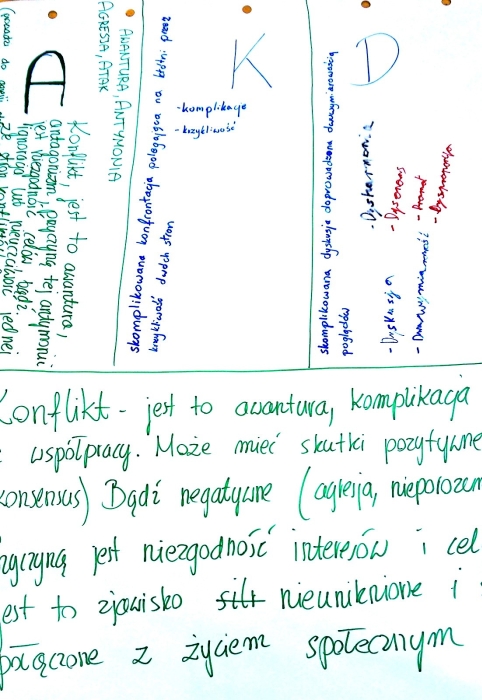 A
• AWANTURA, ANTYMONIA
AGRESJA, ATAK
Konflikt, jest to awantura,
antagonizm, przyczyną tej antymonii
jest niezgodność celów bądź
ignorancja lub nieuczciwość jednej
ze stron konfliktu
K
- komplikacje
- krzykliwość
skomplikowana konfrontacja polegająca na kłótni przez
krzykliwość dwóch stron
D
- Dysharmonia
- Dysonans
- Dramat
- Dysproporcja
- Dyskusja
- Dwuwymiarowość
skomplikowana dyskusja doprowadzona dwuwymiarowością
poglądów
Konflikt - jest to awantura, komplikacja
współpracy. Może mieć skutki pozytywne
konsensus) Bądź negatywne (agresja, nieporozum
zyczyną jest niezgodność interesów i cel
est to zjawisko silt nieuniknione i
połączone z życiem społecznym